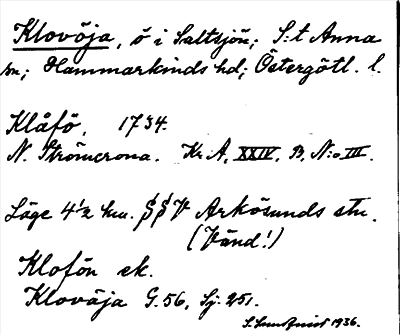 Klovöja, ö i Saltsjön; S:t Anna
sn; Hammarkinds hd; Östergötl. l.
Klåfö. 1734.
N. Strömcrona. Kr. A. XXIV. B. N:o III.
Läge 4½ km. SSV Arkösunds stn.
(Vänd!)
Klofön ek.
Klovöja G. 56, Sj. 251.
1936.